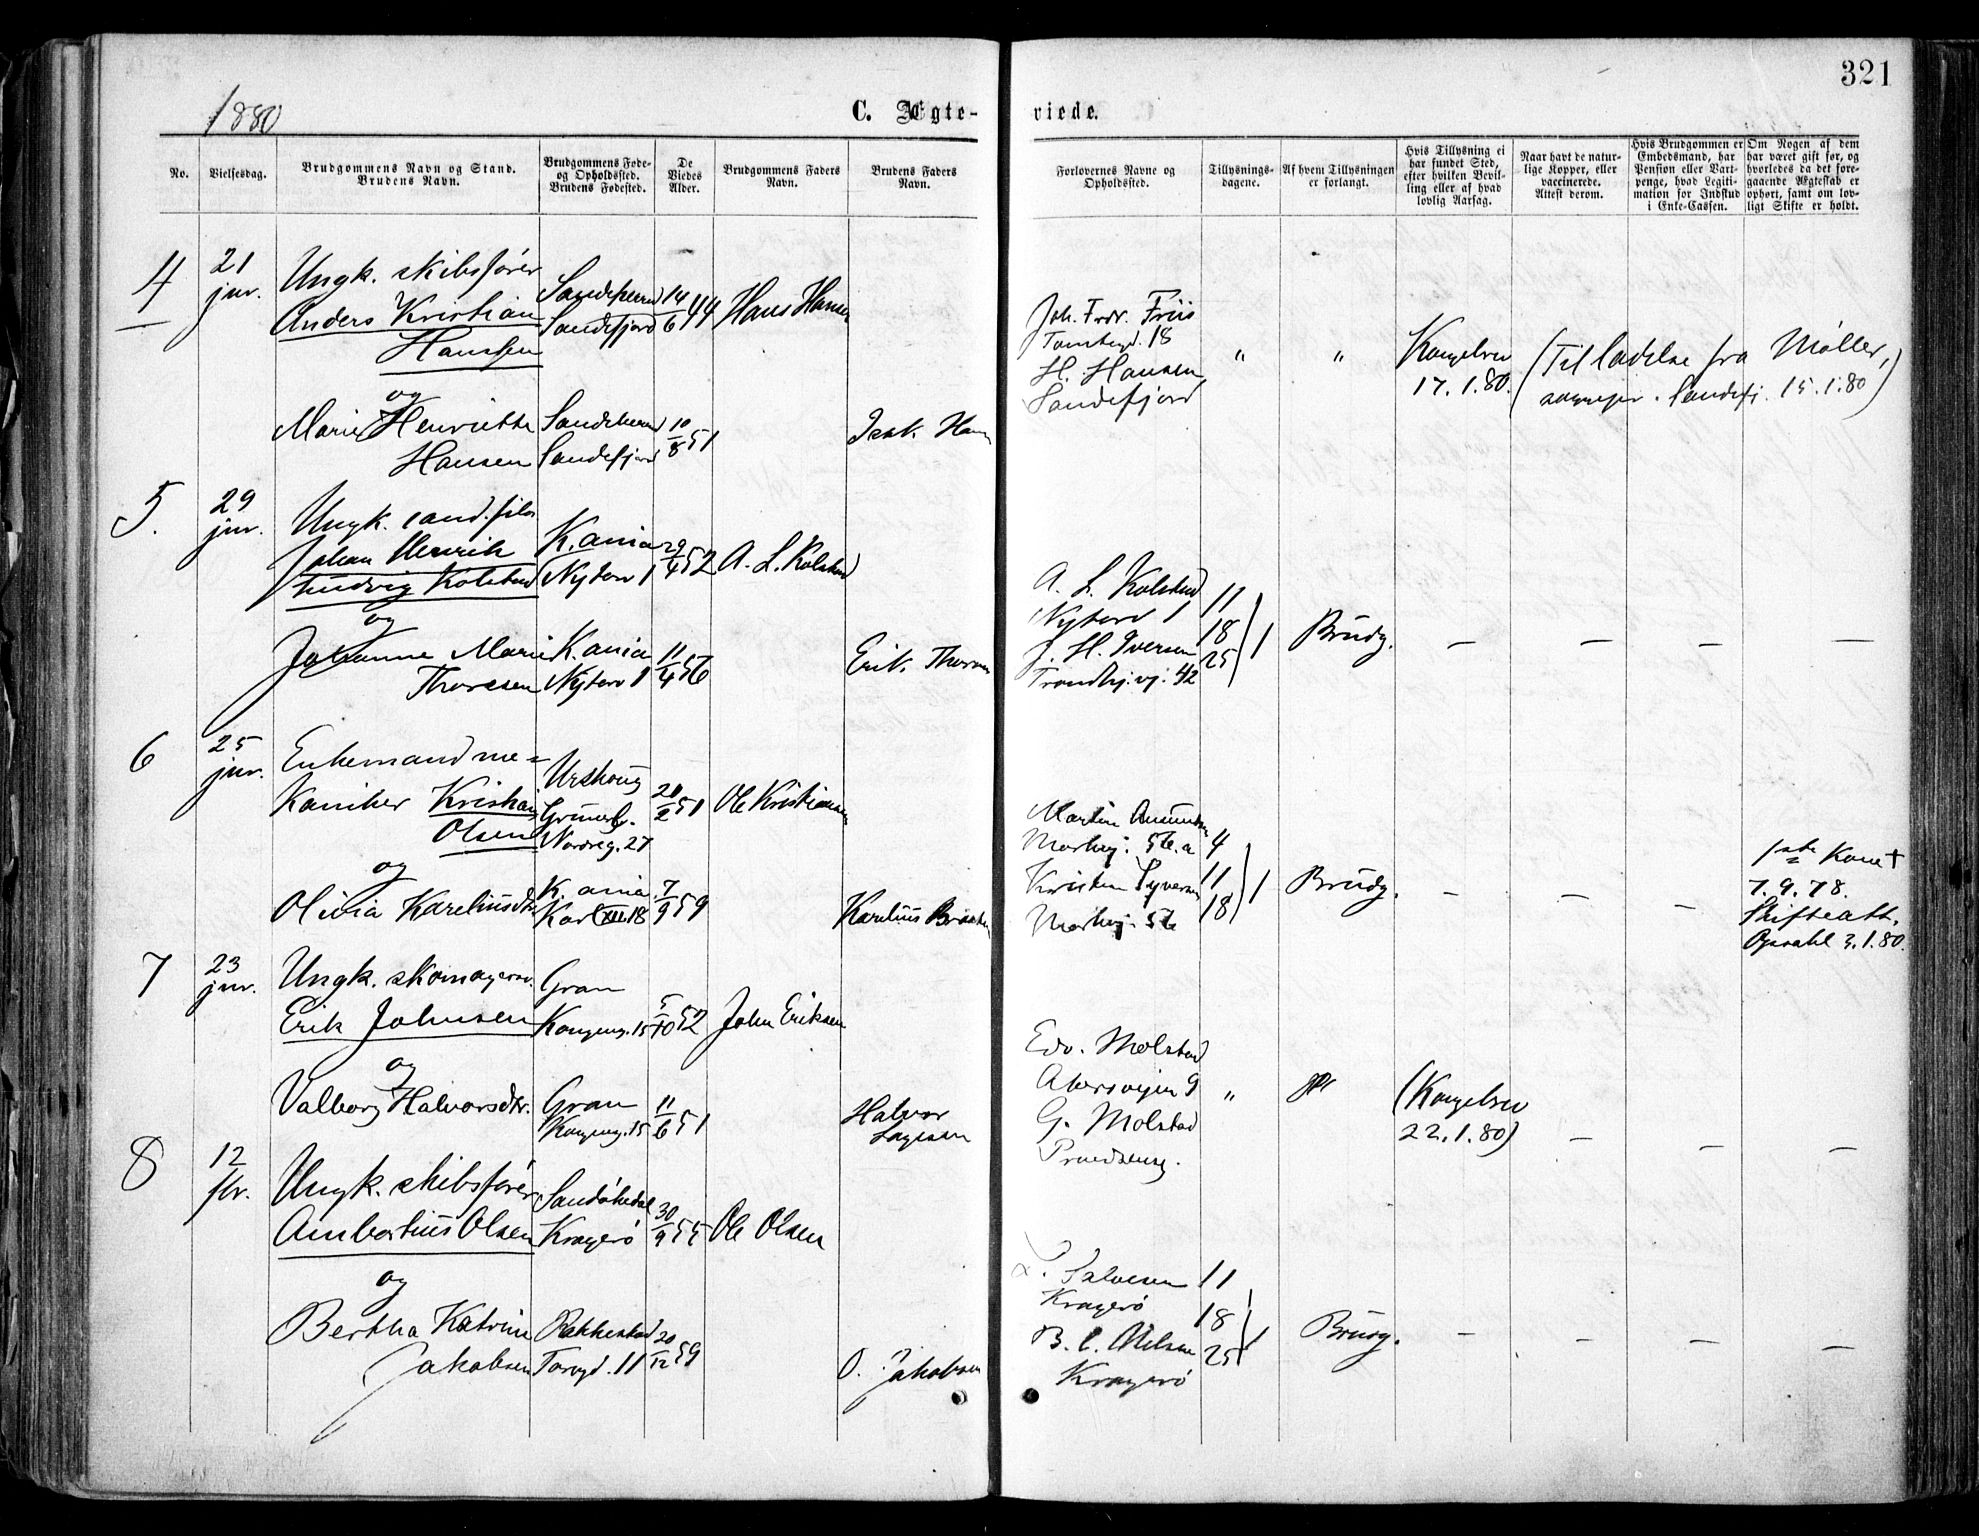 321
1880
C. Ægte-
viede.
No.
Vielsesdag.
Brudgommens Navn og Stand.
Brudens Navn.
Brudgommens Føde-
og Opholdssted.
Brudens Fødested.
De
Viedes
Alder.
Brudgommens Faders
Navn.
Brudens Faders
Navn.
Forlovernes Navne og
Opholdssted.
Tillysnings-
dagene.
Af hvem Tillysningen
er forlangt.
Hvis Tillysning ei
har fundet Sted,
efter hvilken Bevil-
ling eller af hvad
lovlig Aarsag.
Naar havt de natur-
lige Kopper, eller
vaccinerede.
Attest derom.
Hvis Brudgommen er
Embedsmand, har
Pension eller Vart-
penge, hvad Legiti-
mation for Indskud
i Enke-Cassen.
Om Nogen af dem
har været gift før, og
hvorledes da det fore-
gaaende Ægteskab er
ophørt, samt om lov-
ligt Skifte er holdt.
4
21
jnr.
Ungk. skibsfører
Anders Kristian
Hanssen
og
Marie Henriette
Hansen
Sandeherred
Sandefjord
14/6 44
Hans Hansen
Sandeherred
Sandefjord
10/8 51
Isak Hansen
Joh. Fredr. Friis
Tomtegd. 18
H. Hansen
Sandefjord
"
"
Kongebrev
17.1.80.
(Tilladelse fra Møller,
sogneprt. Sandefj. 15.1.80)
5.
29
jnr.
Ungk. cand. filos
Johan Henrik
Ludvig Kolstad
og
Johanne Marie
Thoresen
K.ania
Nytorv 1
29/4 52
A. L. Kolstad
K.ania
Nytorv 1
11/4 56
Erik Thoresen
A. L. Kolstad
Nytorv 1
J. H. Iversen
Trondhj.vj. 42
11
18
25
1
Brudg.
—
—
—
—
6
25
jnr.
Enkemand me-
kaniker Kristian
Olsen
og
Olivia Kareliusdtr.
Urskoug
Grünerl.
Nordreg. 27
20/2 51
Ole Kristiansen
K.ania
Karl XII. 18
7/9 59
Karelius Braaten
Martin Amundsen
Markvej. 56.a
Kristen Syversen
Markvej. 56
4
11
18
1
Brudg.
—
—
—
1ste Kone †
7.9.78.
Skifteatt.
Opsahl 3.1.80.
7
23
jnr.
Ungk. skomagersv.
Erik Johnsen
og
Valborg Halvorsdtr.
Gran
Kongensg. 15
5/10 52
John Eriksen
Gran
Kongensg. 15
11/6 51
Halvor
Edv. Molstad
Akersvejen 9
G. Molstad
"
(Kongebrev
22.1.80)
—
—
—
8
12
fbr.
Ungk. skibsfører
Ambortius Olsen
og
Bertha Katrine
Jakobsen
Sandøkedal
Kragerø
30/9 55
Ole Olsen
Rakkestad
Torvgd. 11
20/12 59
O. Jakobsen
Salvesen
Kragerø
B. C. Nilsen
Kragerø
11
18
25
1
Brudg.
—
—
—
—